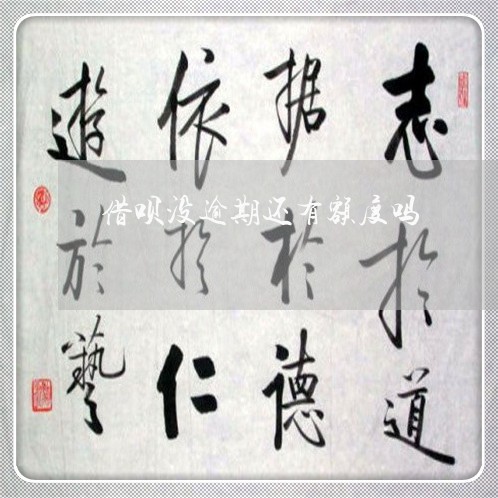 志扵道
据扵德
依扵仁
遊於藝
借呗没逾期还有额度吗